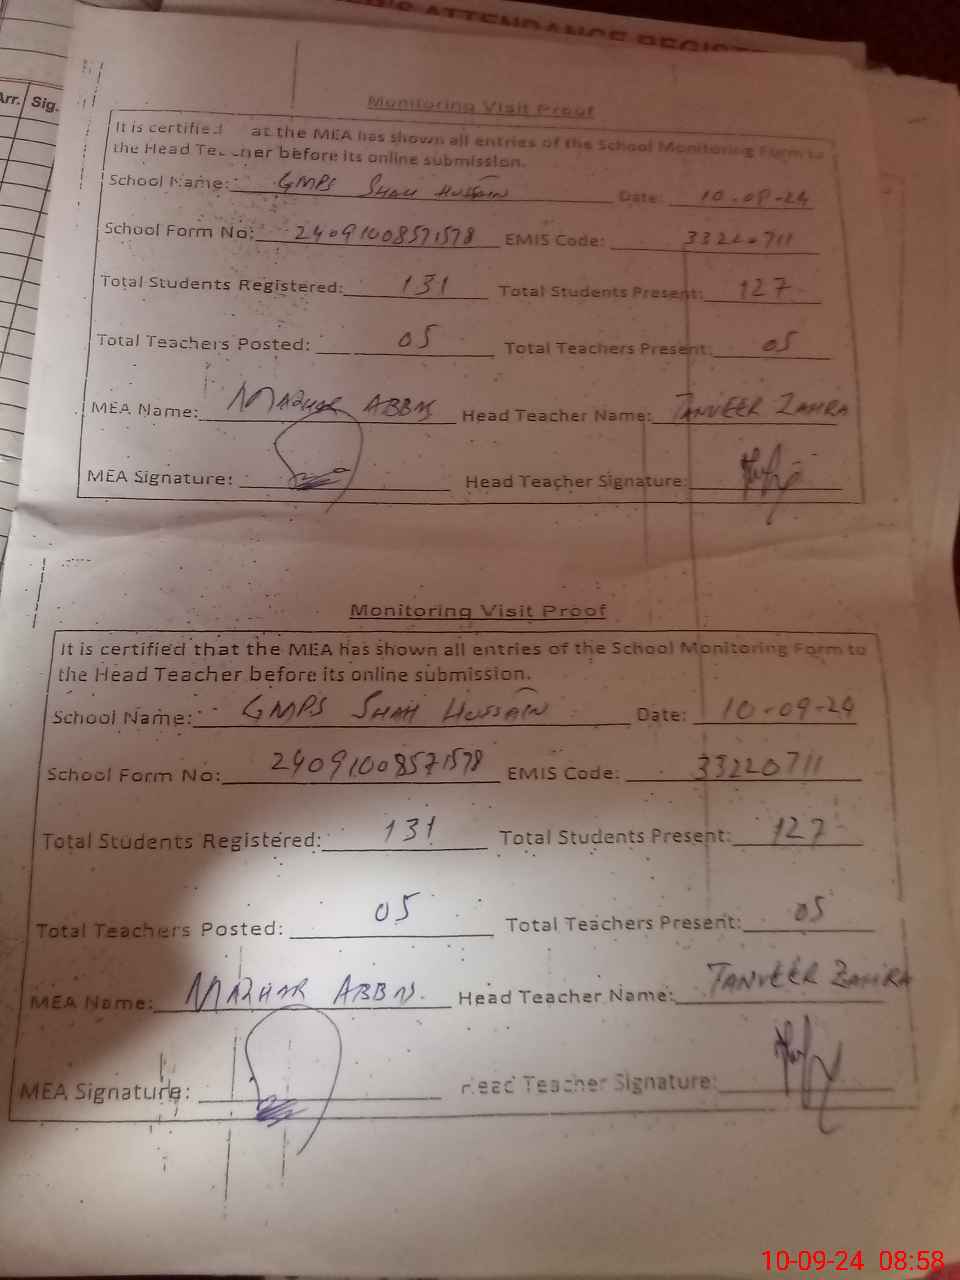 ATTENDANCE REGIST
Arr. Sig.
Monitoring Visit Proof
It is certified at the MEA has shown all entries of the School Monitoring Form to
the Head Teacher before its online submission.
School Name: GMPS SHAH HUSSAIN Date: 10-09-24
School Form No: 24091008571578 EMIS Code: 33220711
Total Students Registered: 131 Total Students Present: 127
Total Teachers Posted: 05 Total Teachers Present: 05
MEA Name: MAZHAR ABBAS Head Teacher Name: TANVEER ZAHRA
MEA Signature: Head Teacher Signature:
Monitoring Visit Proof
It is certified that the MEA has shown all entries of the School Monitoring Form to
the Head Teacher before its online submission.
School Name: GMPS SHAH HUSSAIN Date: 10-09-24
School Form No: 24091008571578 EMIS Code: 33220711
Total Students Registered: 131 Total Students Present: 127
Total Teachers Posted: 05 Total Teachers Present: 05
MEA Name: MAZHAR ABBAS. Head Teacher Name: TANVEER ZAHRA
MEA Signature: Head Teacher Signature:
10-09-24 08:58